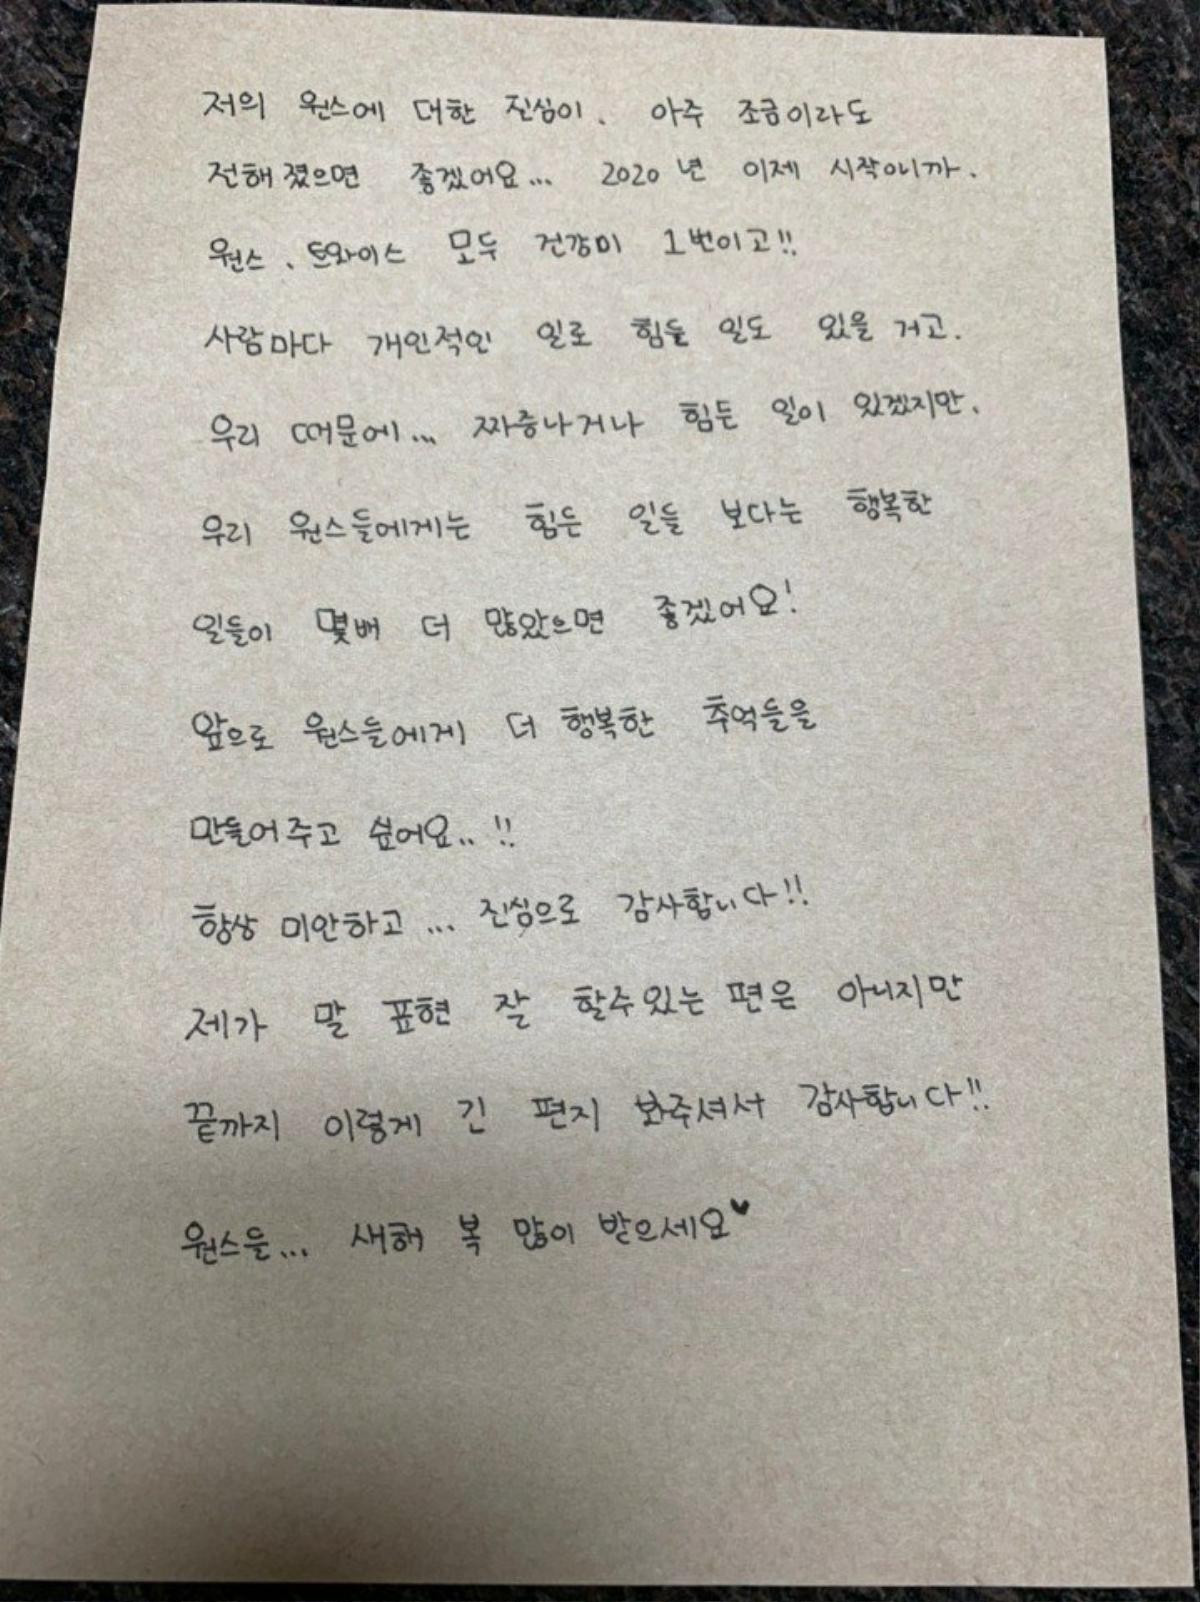 저의 원스에 대한 진심이. 아주 조금이라도
전해졌으면 좋겠어요... 2020년 이제 시작이니까.
원스. 트와이스 모두 건강이 1번이고!!
사람마다 개인적인 일로 힘들 일도 있을 거고.
우리 때문에... 짜증나거나 힘든 일이 있겠지만.
우리 원스들에게는 힘든 일들 보다는 행복한
일들이 몇배 더 많았으면 좋겠어요!
앞으로 원스들에게 더 행복한 추억들을
만들어주고 싶어요..!!
항상 미안하고... 진심으로 감사합니다!!
제가 말 표현 잘 할수있는 편은 아니지만
끝까지 이렇게 긴 편지 봐주셔서 감사합니다!!
원스들... 새해 복 많이 받으세요♥